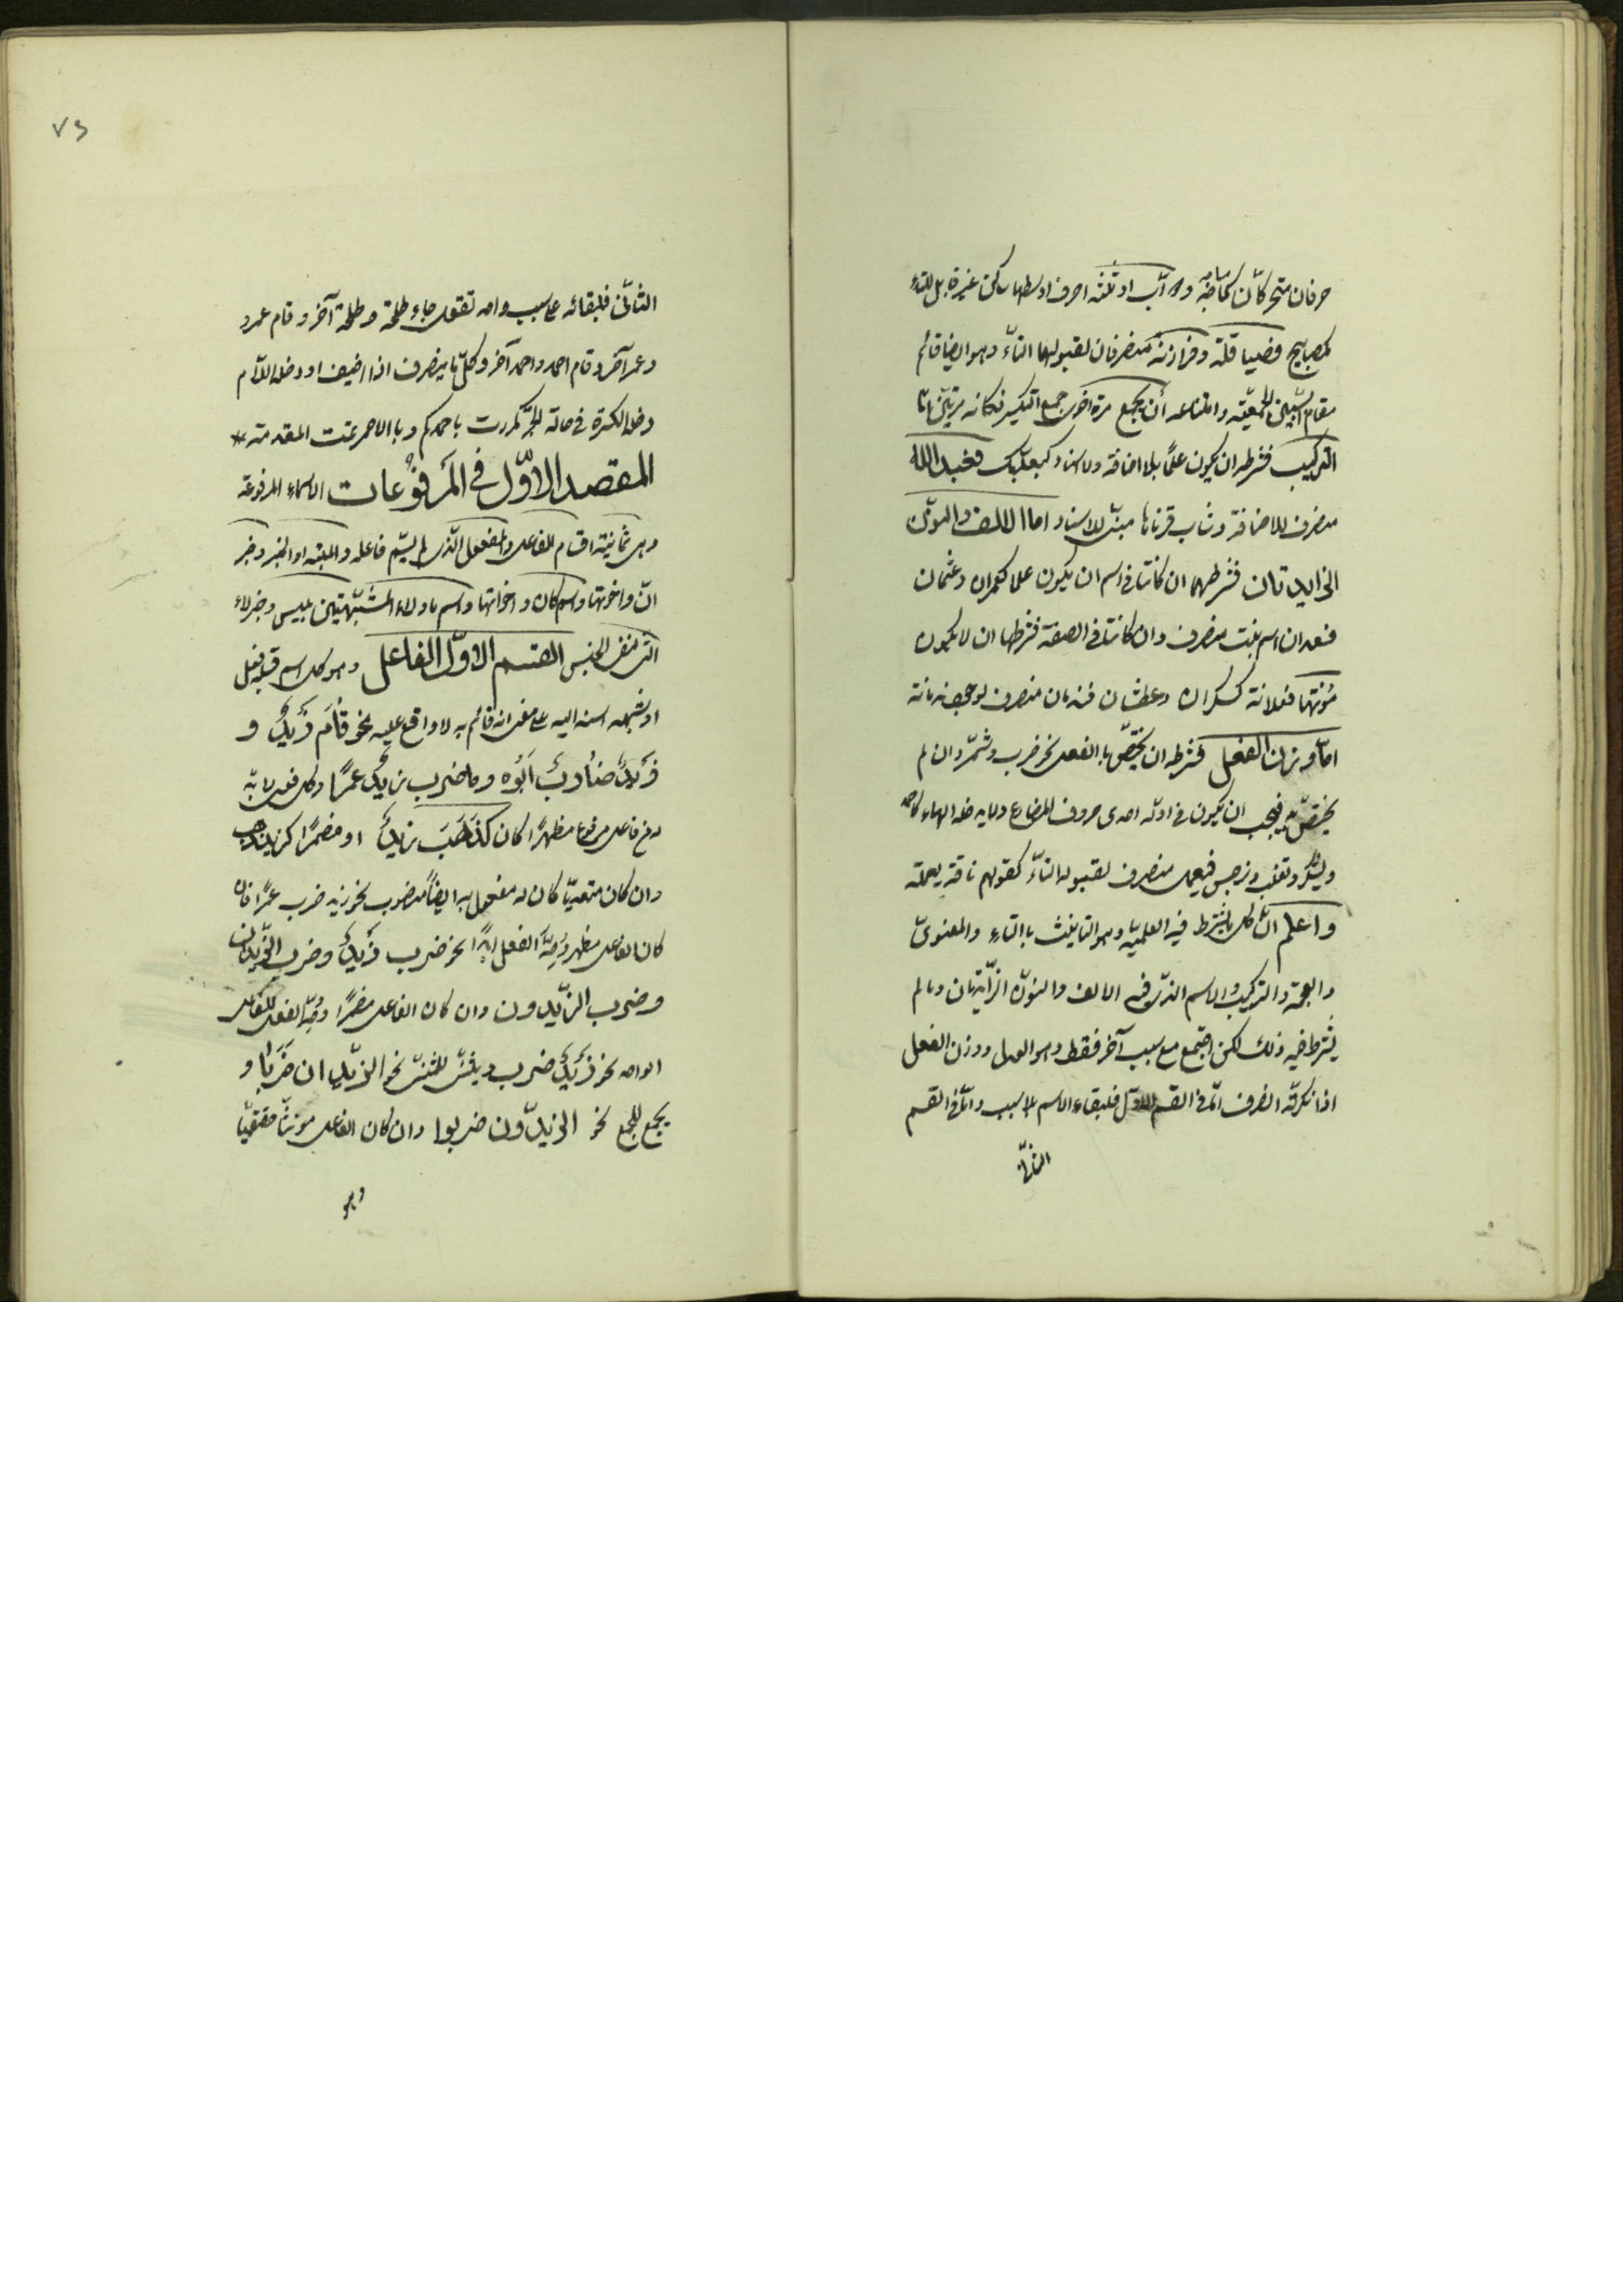 حرفان متحركان كمساجد ودوابّ او ثلثة احرف اوسطها ساكن غير قابل للتاء
كمصابيح فصياقلة وفرازنة منصرفان لقبولهما التاء وهو ايضا قائم
مقام السببين الجمعيّة وامتناعه أن يجمع مرة اخرى جمع التكسير فكانه مرتين امّا
التركيب فشرطه ان يكون علمًا بلا اضافة ولا اسناد كبعلبك فعبد الله
منصرف للاضافة وشاب قرناها مبنىّ للاسناد اما الالف والنون
الزايدتان فشرطهما ان كانتا فى اسم ان يكون علما كعمران وعثمان
فسعدان اسم نبت منصرف وان كانتا فى الصفة فشرطها ان لا يكون
مؤنثها فعلانة كسكران وعطشان فندمان منصرف لوجود ندمانة
امّا وزن الفعل فشرطه ان يختصّ بالفعل نحو ضرب وشمّر وان لم
يختصّ به فيجب ان يكون فى اوله احدى حروف المضارع ولا يدخله الهاء كاحمد
ويشكر وتغلب ونرجس فيعمل منصرف لقبوله التاء كقولهم ناقة يعملة
واعلم انّ كل ما يشترط فيه العلميّة وهو التانيث بالتاء والمعنوىّ
والعجمة والتركيب والاسم الذى فيه الالف والنون الزايدتان وما لم
يشترط فيه ذلك لكن اجتمع مع سبب آخر فقط وهو العدل ووزن الفعل
اذا نكرته انصرف امّا فى القسم الاوّل فلبقاء الاسم بلا سبب وامّا فى القسم
الثانى
٧٥
الثانى فلبقائه على سبب واحد تقول جاء طلحة وطلحة آخر وقام عمر و
وعمر آخر وقام احمد واحمد آخر وكلّ ما لا ينصرف اذا اضيف او دخله اللّام
دخله الكسرة فى حالة الجرّ كمررت باحمدكم وبالاحمر تمت المقدمة
المقصد الاوّل فى المرفوعات الاسماء المرفوعة
وهى ثمانية اقسام الفاعل والمفعول الّذى لم يسمّ فاعله والمبتداء والخبر وخبر
انّ واخواتها واسم كان واخواتها واسم ما ولا المشبّهتين بليس وخبر لاء
التى لنفى الجنس القسم الاوّل الفاعل وهو كل اسم قبله فعل
او شبهه اسند اليه على معنى انه قائم به لا واقع عليه نحو قَامَ زَيْدٌ و
زَيْدٌ ضَارِبٌ اَبُوه وما ضرب زيدٌ عمرًا وكل فعل لا بدّ
له من فاعل مرفوع مظهرًا كان كذَهَبَ زيدٌ او مضمرًا كزيد ذهب
وان كان متعديّا كان له مفعول به ايضًا منصوب نحو زيد ضرب عمرًا فان
كان الفاعل مظهر وُحِّدَ الفعل ابدًا نحو ضرب زَيْدٌ وضرب الزَّيدان
وضرب الزيدون وان كان الفاعل مضمرًا وُحِّدَ الفعل للفاعل
الواحد نحو زَيْدٌ ضرب ويثنّى للمثنى نحو الزيدان ضَرَبَا و
يجمع للجمع نحو الزيدون ضربوا وان كان الفاعل مؤنثًا حقيقيًّا
وهو